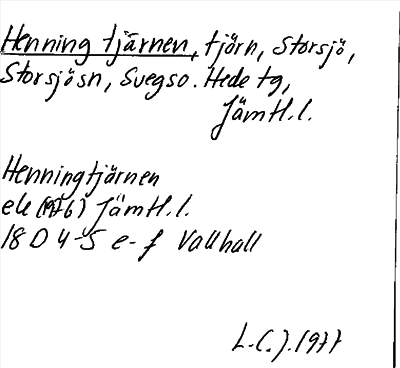 Henning tjärnen, tjörn, Storsjö,
Storsjösn, Svegso. Hede tg,
Jämtl.l.
Henningtjärnen
ek (1976) Jämtl.l.
18 D 4-5 e-f Vallhall
L.C.J. 1977